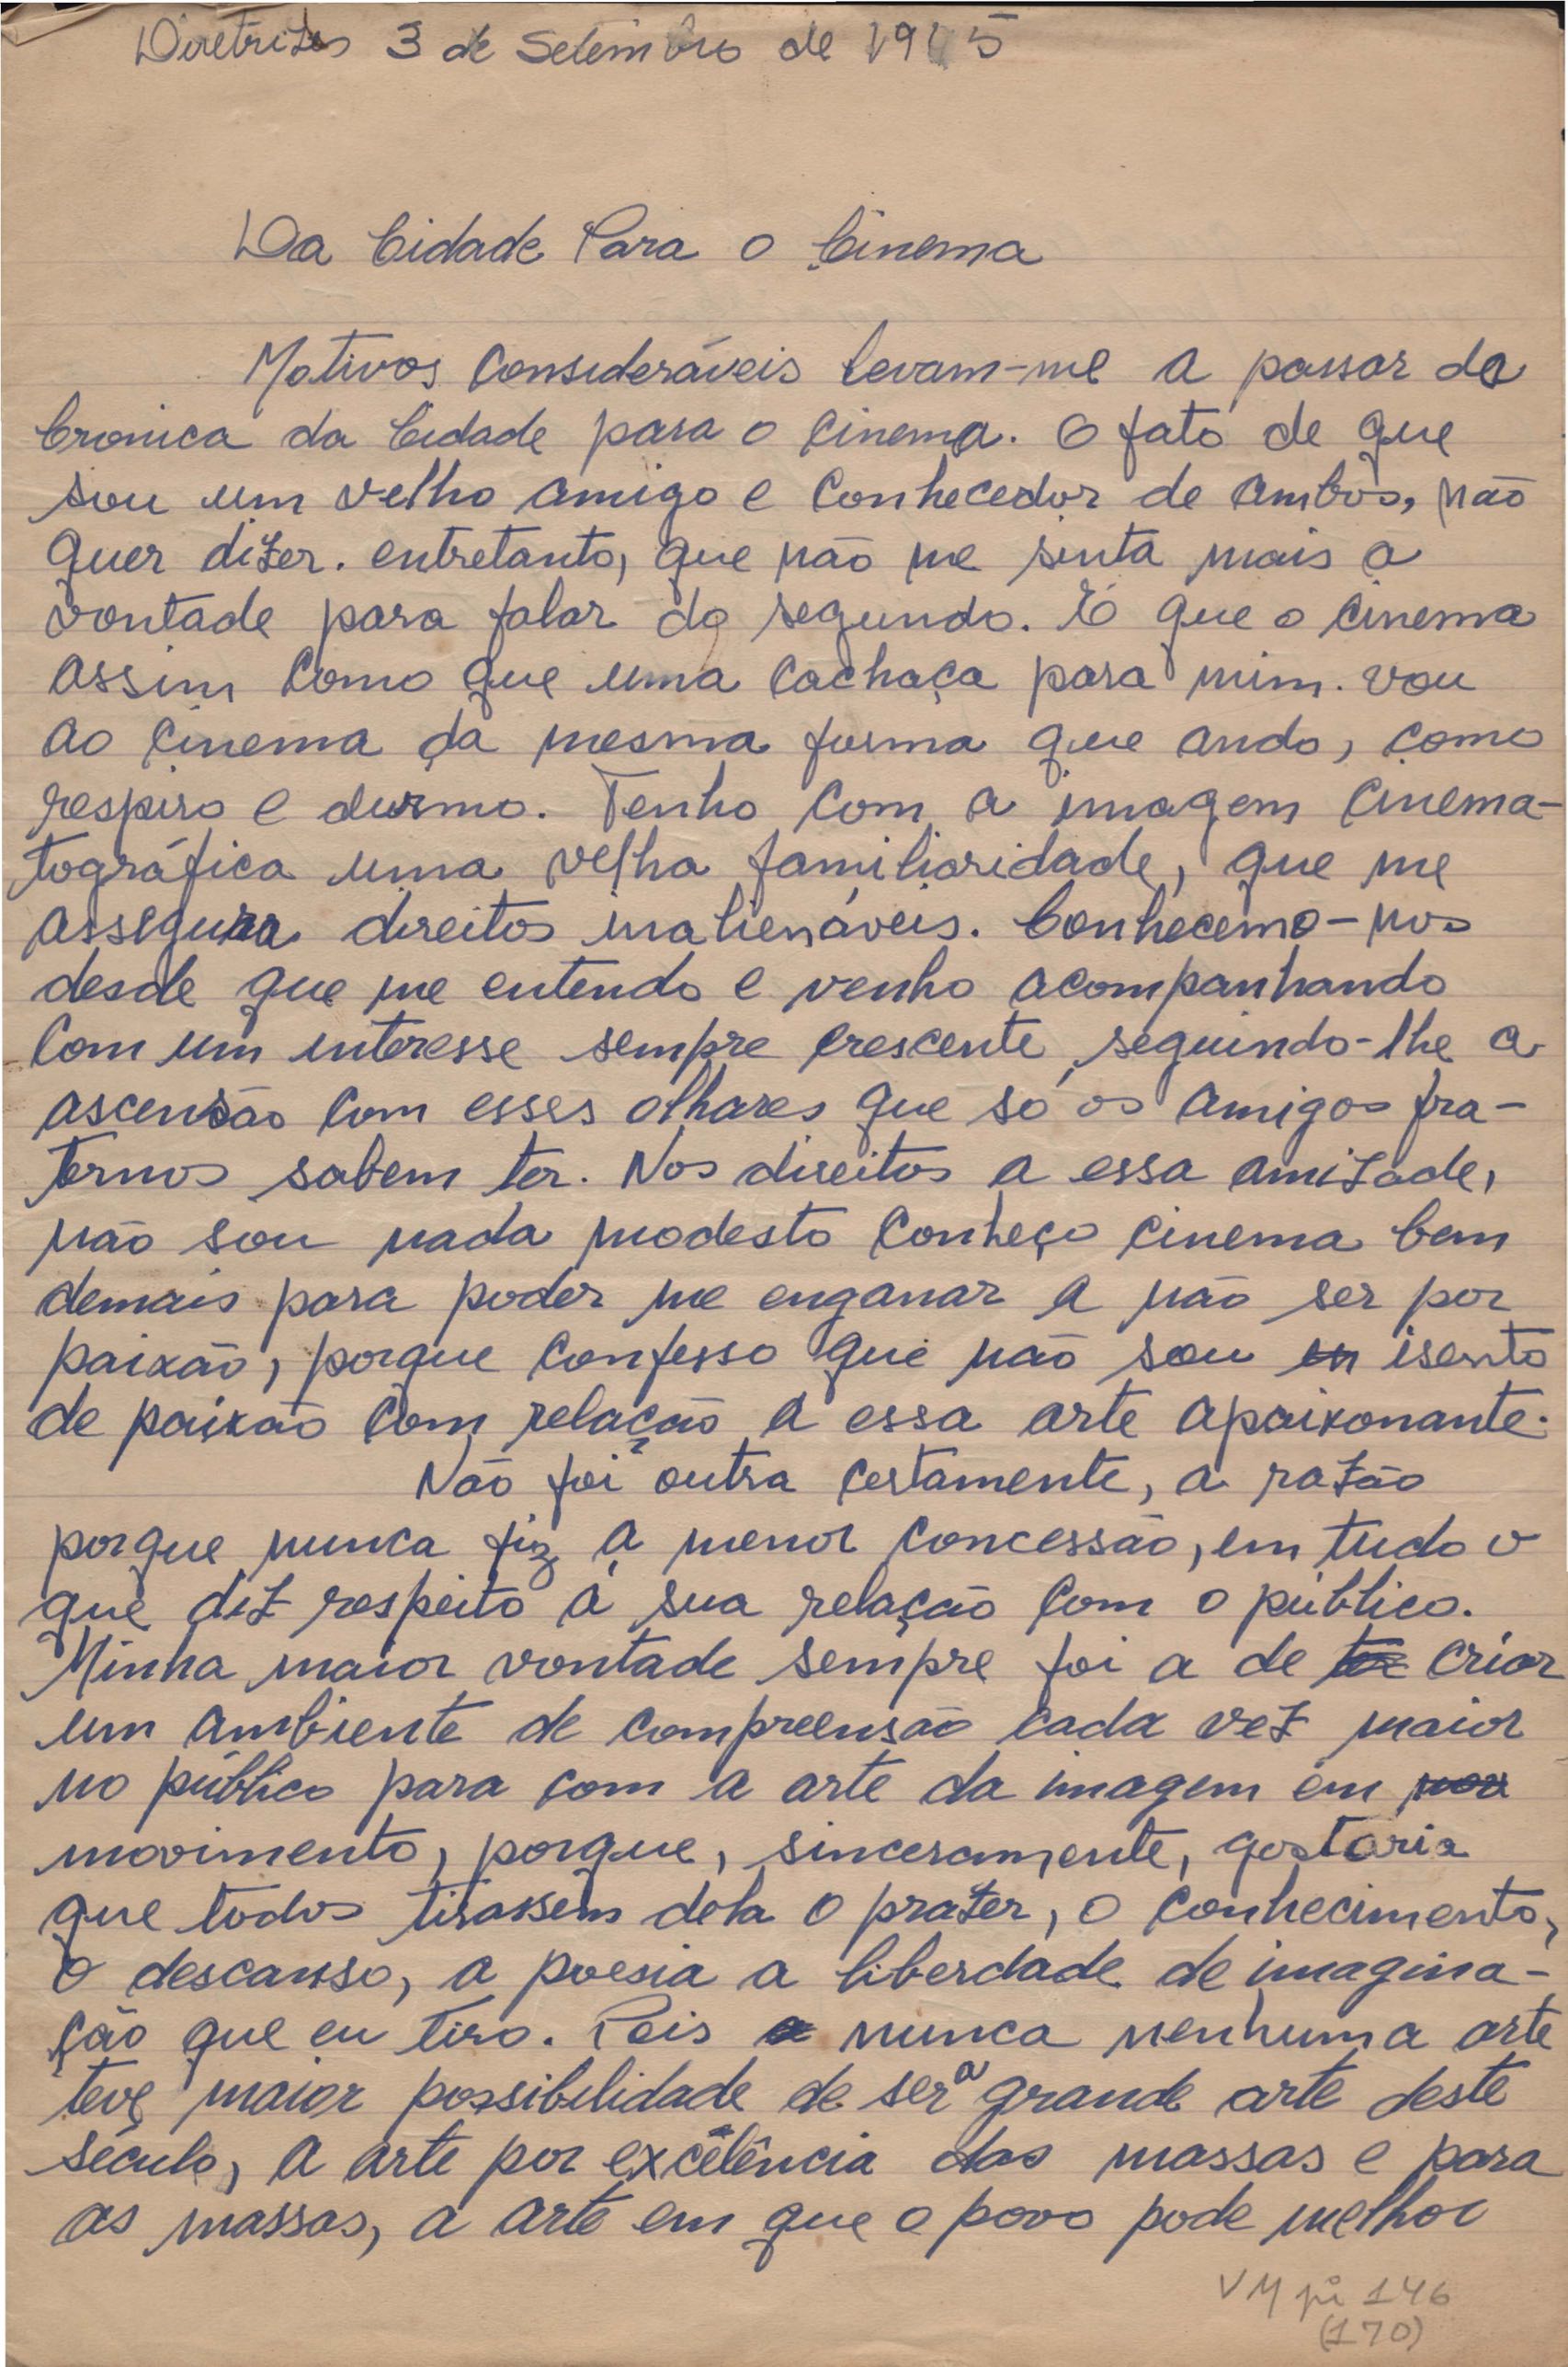 Diretrizes 3 de Setembro de 1945
Da Cidade Para o Cinema
Motivos Consideráveis levam-me a passar da
Cronica da Cidade para o Cinema. O fato de que
sou um velho amigo e Conhecedor de ambos, não
quer dizer. entretanto, que não me sinta mais a
vontade para falar do segundo. É que o Cinema
assim Como que uma Cachaça para mim. vou
ao Cinema da mesma forma que ando, como
respiro e durmo. Tenho Com a imagem Cinema-
tográfica uma velha familiaridade, que me
assegura direitos inalienáveis. Conhecemo-nos
desde que me entendo e venho acompanhando
Com um interesse sempre crescente, seguindo-lhe a
ascensão Com esses olhares que só os amigos fra-
ternos sabem ter. Nos direitos a essa amizade,
não sou nada modesto Conheço Cinema bem
demais para poder me enganar a não ser por
paixão, porque Confesso que não sou en isento
de paixão Com relação a essa arte apaixonante.
Não foi outra Certamente, a razão
porque nunca fiz a menor Concessão, em tudo o
que diz respeito á sua relação Com o público.
Minha maior vontade sempre foi a de ter Criar
um ambiente de Compreensão Cada vez maior
no público para com a arte da imagem em
movimento, porque, sinceramente, gostaria
que todos tirassem dela o prazer, o Conhecimento,
o descanso, a poesia a liberdade de imagina-
ção que eu tiro. Pois a nunca nenhuma arte
teve maior possibilidade de ser a grande arte deste
século, a arte por excelência das massas e para
as massas, a arte em que o povo pode melhor
VM pi 146
(170)